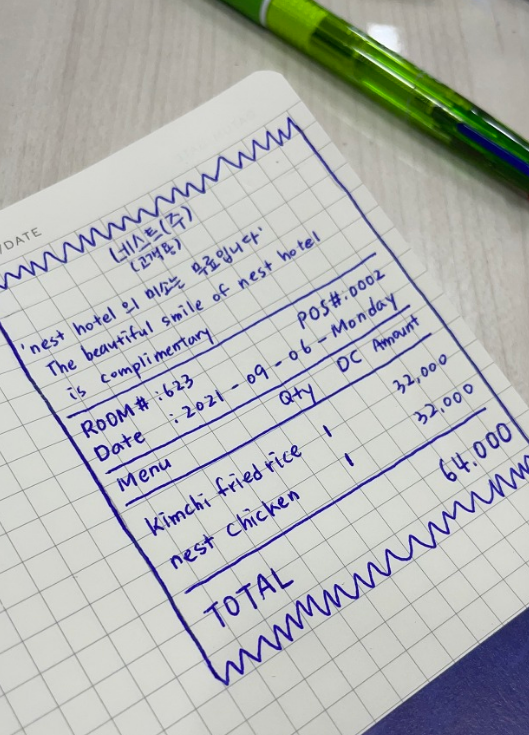 /DATE
네스트(주)
(고객용)
'nest hotel 의 미소는 무료입니다'
The beautiful smile of nest hotel
is complimentary
POS#:0002
ROOM# :623
Date :2021-09-06-Monday
Menu Qty DC Amount
Kimchi fried rice 1 32,000
nest chicken 1 32,000
TOTAL 64.000